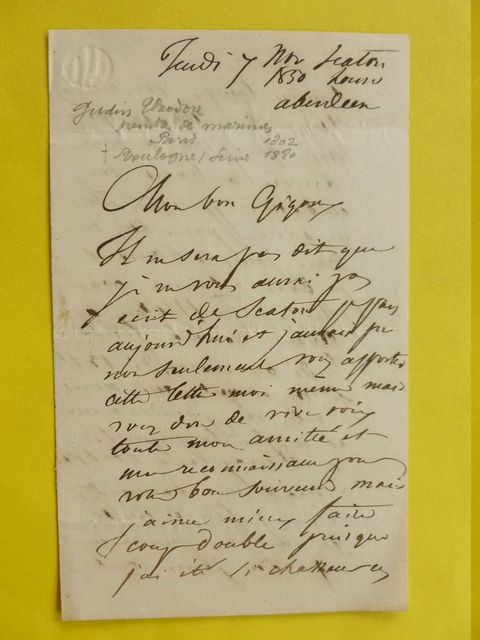 Jeudi 7 Nov Seaton
1850 house
aberdeen
Gudin Théodore
peintre de marines
Paris 1802
† Boulogne/Seine 1880
Mon bon Gigoux
Il ne sera pas dit que
je ne vous aurai pas
écrit de Seaton je pars
aujourd'hui et j'aurais pu
non seulement vous apporter
cette lettre moi même mais
vous dire de vive voix
toute mon amitié et
ma reconnaissance pour
votre bon souvenir mais
j'aime mieux faire
coup double puisque
j'ai été si chasseur